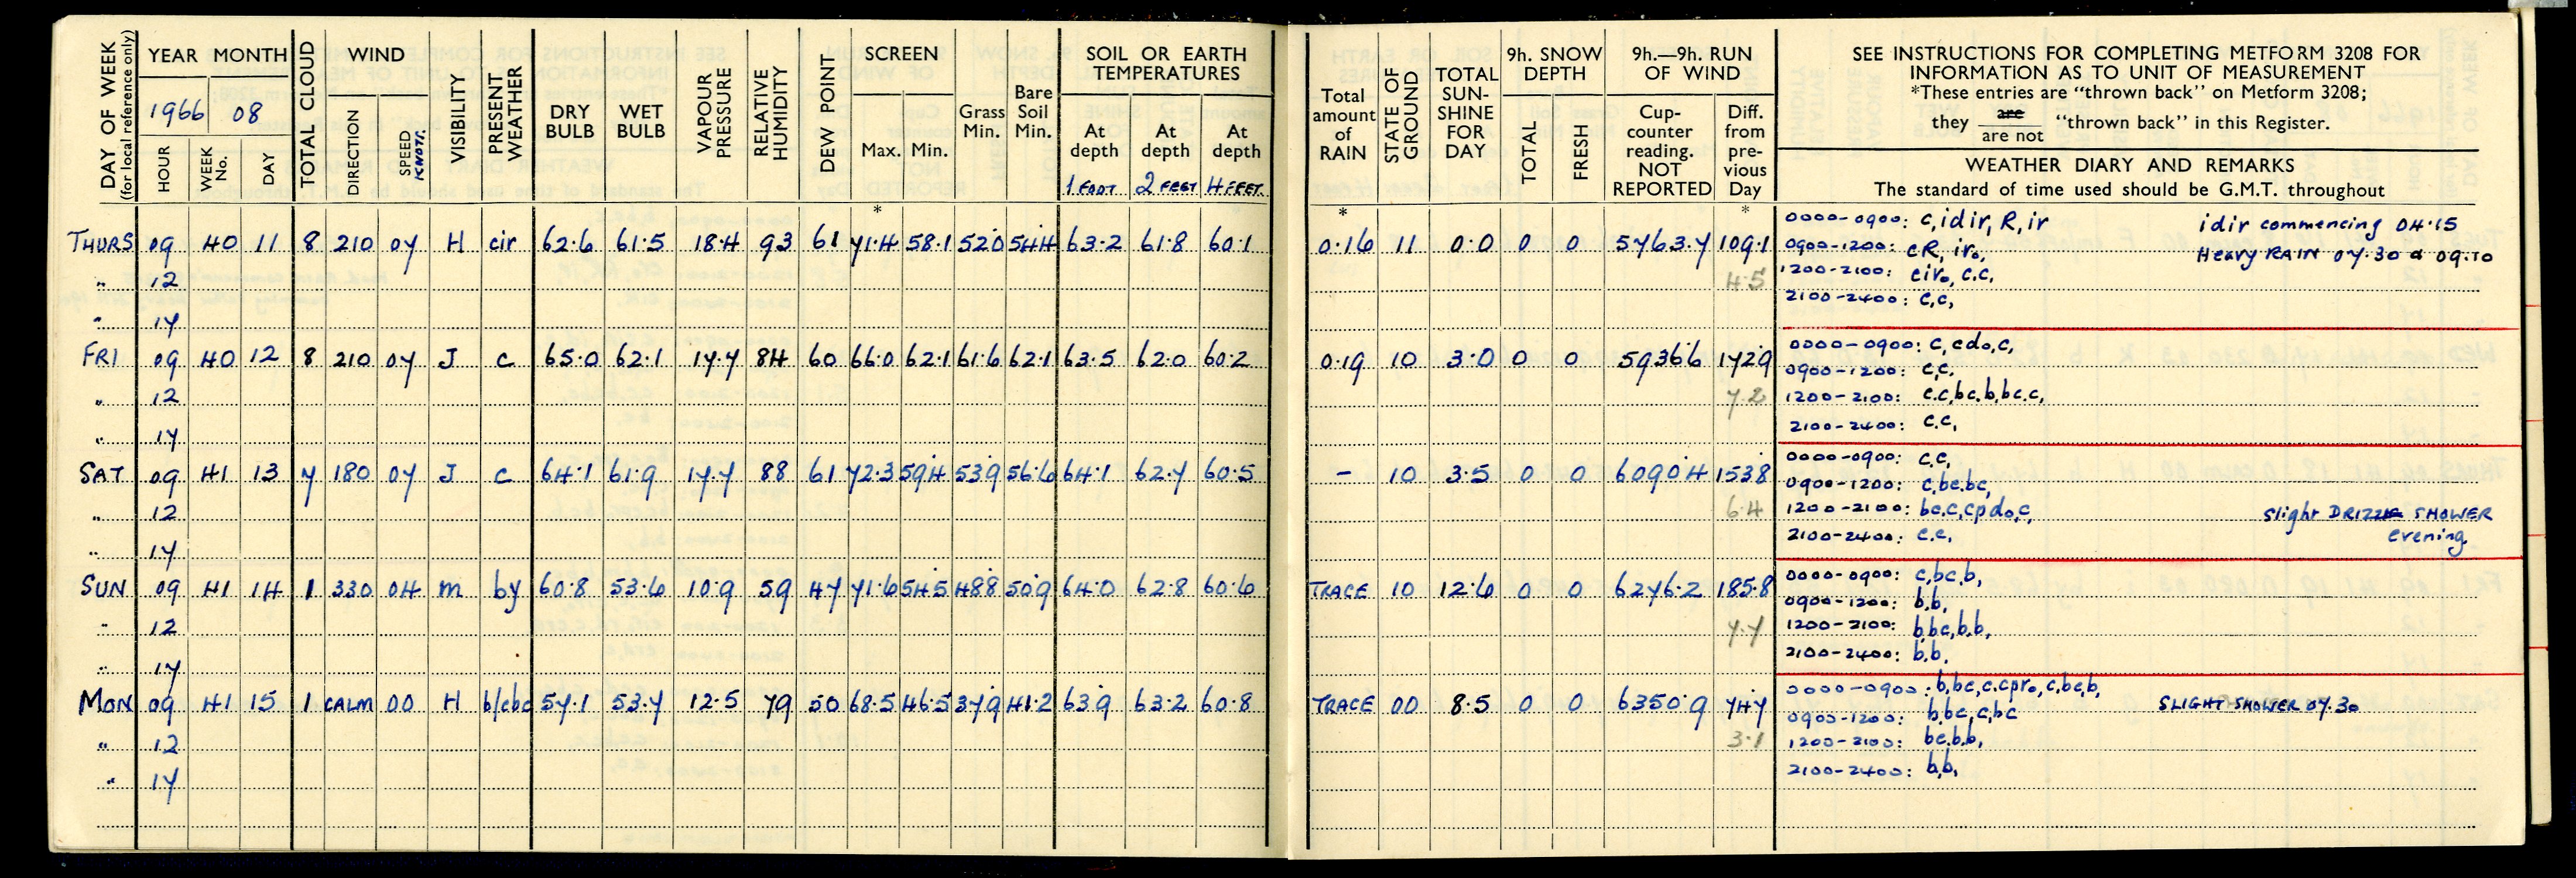 DAY OF WEEK (for local reference only)
YEAR MONTH
1966 08
HOUR WEEK No. DAY
TOTAL CLOUD
WIND
DIRECTION SPEED KNOTS.
VISIBILITY
PRESENT WEATHER
DRY BULB
WET BULB
VAPOUR PRESSURE
RELATIVE HUMIDITY
DEW POINT
SCREEN
Max. Min.
*
Grass Min.
Bare Soil Min.
SOIL OR EARTH TEMPERATURES
At depth At depth At depth
1 FOOT 2 FEET 4 FEET
Total amount of RAIN
*
STATE OF GROUND
TOTAL SUN-SHINE FOR DAY
9h. SNOW DEPTH
TOTAL FRESH
9h.—9h. RUN OF WIND
Cup-counter reading. NOT REPORTED
Diff. from pre-vious Day
*
SEE INSTRUCTIONS FOR COMPLETING METFORM 3208 FOR
INFORMATION AS TO UNIT OF MEASUREMENT
*These entries are "thrown back" on Metform 3208;
they are / are not "thrown back" in this Register.
WEATHER DIARY AND REMARKS
The standard of time used should be G.M.T. throughout
THURS 09 40 11 8 210 07 H cir 62.6 61.5 18.4 93 61 71.4 58.1 52.0 54.4 63.2 61.8 60.1 0.16 11 0.0 0 0 5763.7 109.1
0000-0900: c,idir,R,ir idir commencing 04.15
0900-1200: cR, iro, Heavy RAIN 07.30 a 09.10
" 12 4.5
1200-2100: ciro, c.c,
2100-2400: c,c,
" 17
FRI 09 40 12 8 210 07 J c 65.0 62.1 17.7 84 60 66.0 62.1 61.6 62.1 63.5 62.0 60.2 0.19 10 3.0 0 0 5936.6 172.9
0000-0900: c,cdo,c,
0900-1200: c,c.
" 12 7.2
1200-2100: c.c,bc.b,bc.c,
2100-2400: c.c,
" 17
SAT 09 41 13 7 180 07 J c 64.1 61.9 17.7 88 61 72.3 59.4 53.9 56.6 64.1 62.7 60.5 - 10 3.5 0 0 6090.4 153.8
0000-0900: c.c,
0900-1200: c,bc.bc,
" 12 6.4
1200-2100: bc.c,cpdo,c, Slight DRIZZLE SHOWER
2100-2400: c.c, evening.
" 17
SUN 09 41 14 1 330 04 m by 60.8 53.6 10.9 59 47 71.6 54.5 48.8 50.9 64.0 62.8 60.6 TRACE 10 12.6 0 0 6276.2 185.8
0000-0900: c,bc,b,
0900-1200: b.b,
" 12 7.7
1200-2100: b,bc,b.b,
2100-2400: b.b.
" 17
MON 09 41 15 1 CALM 00 H b/cbc 57.1 53.7 12.5 79 50 68.5 46.5 37.9 41.2 63.9 63.2 60.8 TRACE 00 8.5 0 0 6350.9 74.7
0000-0900: b,bc,c.cpro,c,bc,b, SLIGHT SHOWER 07.30
0900-1200: b,bc,c,bc
" 12 3.1
1200-2100: bc.b.b,
2100-2400: b,b,
" 17